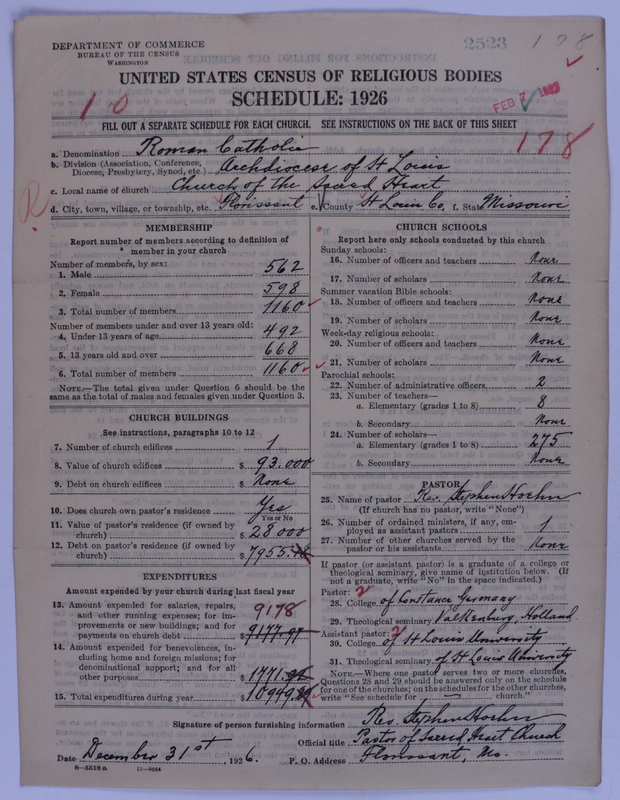 DEPARTMENT OF COMMERCE
BUREAU OF THE CENSUS
WASHINGTON
2523
178
UNITED STATES CENSUS OF RELIGIOUS BODIES
SCHEDULE: 1926
10
FEB 7
FILL OUT A SEPARATE SCHEDULE FOR EACH CHURCH. SEE INSTRUCTIONS ON THE BACK OF THIS SHEET
178
a. Denomination Roman Catholic
b. Division (Association, Conference, Diocese, Presbytery, Synod, etc.) Archdiocese of St Louis
c. Local name of church Church of the Sacred Heart
R
d. City, town, village, or township, etc. Florissant e. County St Louis Co. f. State Missouri
MEMBERSHIP
Report number of members according to definition of member in your church
Number of members, by sex:
1. Male 562
2. Female 598
3. Total number of members 1160
Number of members under and over 13 years old:
4. Under 13 years of age 492
5. 13 years old and over 668
6. Total number of members 1160
NOTE.—The total given under Question 6 should be the same as the total of males and females given under Question 3.
CHURCH BUILDINGS
See instructions, paragraphs 10 to 12
7. Number of church edifices 1
8. Value of church edifices $ 93.000
9. Debt on church edifices $ None
10. Does church own pastor's residence Yes
Yes or No
11. Value of pastor's residence (if owned by church) $ 28000
12. Debt on pastor's residence (if owned by church) $ 7955.
EXPENDITURES
Amount expended by your church during last fiscal year
13. Amount expended for salaries, repairs, and other running expenses; for improvements or new buildings; and for payments on church debt 9178 $ 9177.97
14. Amount expended for benevolences, including home and foreign missions; for denominational support; and for all other purposes $ 1771.
15. Total expenditures during year $ 10949.
CHURCH SCHOOLS
Report here only schools conducted by this church
Sunday schools:
16. Number of officers and teachers None
17. Number of scholars None
Summer vacation Bible schools:
18. Number of officers and teachers None
19. Number of scholars None
Week-day religious schools:
20. Number of officers and teachers None
21. Number of scholars None
Parochial schools:
22. Number of administrative officers 2
23. Number of teachers—
a. Elementary (grades 1 to 8) 8
b. Secondary None
24. Number of scholars—
a. Elementary (grades 1 to 8) 275
b. Secondary None
PASTOR
25. Name of pastor Rev. Stephen Hoehn
(If church has no pastor, write "None")
26. Number of ordained ministers, if any, employed as assistant pastors 1
27. Number of other churches served by the pastor or his assistants None
If pastor (or assistant pastor) is a graduate of a college or theological seminary, give name of institution below. (If not a graduate, write "No" in the space indicated.)
Pastor: 2
28. College of Constance Germany
29. Theological seminary Valkenburg, Holland
Assistant pastor: 2
30. College of St Louis University
31. Theological seminary of St Louis University
NOTE.—Where one pastor serves two or more churches, Questions 28 and 29 should be answered only on the schedule for one of the churches; on the schedules for the other churches, write "See schedule for — church."
Signature of person furnishing information Rev. Stephen Hoehn
Official title Pastor of Sacred Heart Church
Date December 31st, 1926. P. O. Address Florissant, Mo.
8—5518 a 11—9064